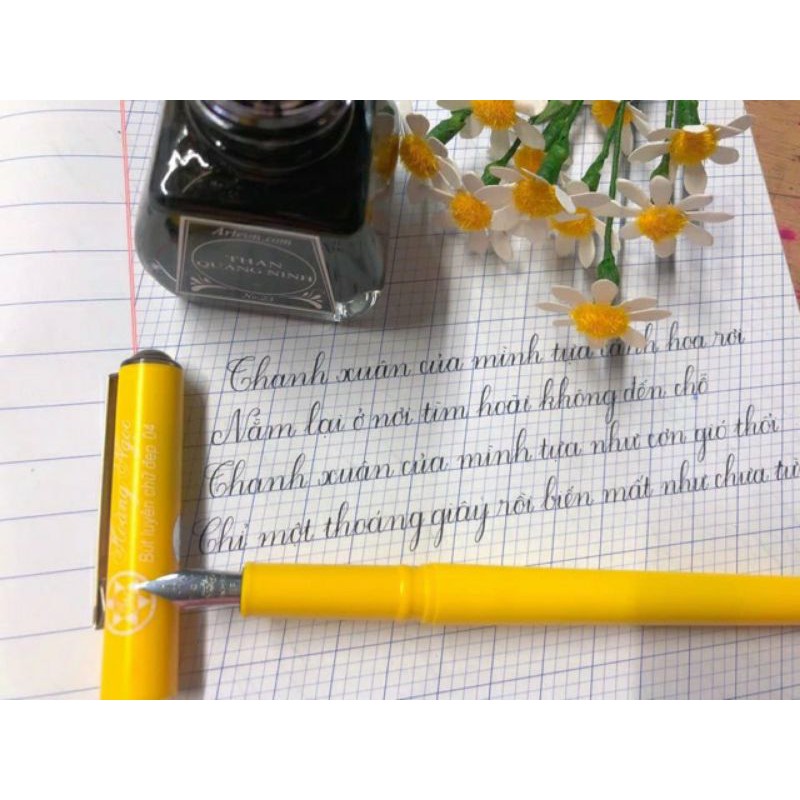 Artevn.com
THAN
QUANG NINH
No.21
Thanh xuân của mình tựa cánh hoa rơi
Nằm lại ở nơi tìm hoài không đến chỗ
Thanh xuân của mình tựa như cơn gió thổi
Chỉ một thoáng giây rồi biến mất như chưa từ
Hoàng Ngọc
Bút luyện chữ đẹp 04